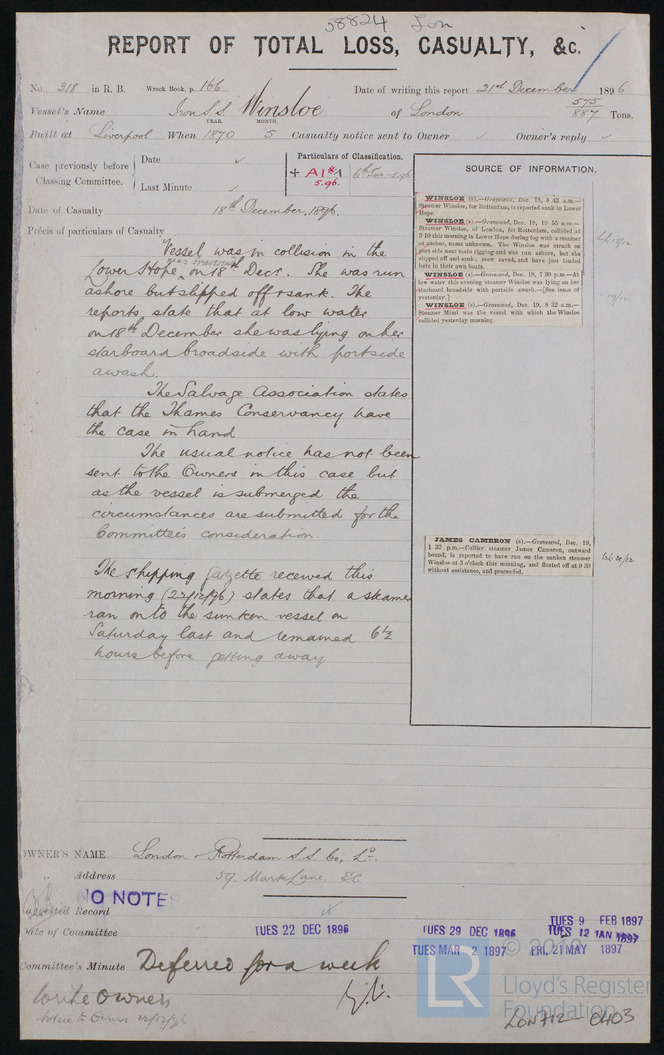 58824 Lon
REPORT OF TOTAL LOSS, CASUALTY, &c.
No. 318 in R. B. Wreck Book, p. 166 Date of writing this report 21st December 1896
Vessel's Name Iron S.S. Winsloe of London 575/887 Tons.
Built at Liverpool When YEAR. 1870 MONTH. 5 Casualty notice sent to Owner Owner's reply
Case previously before Classing Committee. Date
Last Minute
Particulars of Classification.
+ A1*
5.96.
Date of Casualty 18th December, 1896.
Précis of particulars of Casualty
Vessel was in collision in the
Lower Hope on 18th Decr. She was run
ashore but slipped off & sank. The
reports state that at low water
on 18th December she was lying on her
starboard broadside with portside
awash.
The Salvage Association states
that the Thames Conservancy have
the case in hand
The usual notice has not been
sent to the Owners in this case but
as the vessel is submerged the
circumstances are submitted for the
Committee's consideration.
The Shipping Gazette received this
morning (22/12/96) states that a steamer
ran onto the sunken vessel on
Saturday last and remained 6½
hours before getting away
SOURCE OF INFORMATION.
WINSLOE (s).—Gravesend, Dec. 18, 8 42 a.m.—
Steamer Winsloe, for Rotterdam, is reported sunk in Lower
Hope.
WINSLOE (s).—Gravesend, Dec. 18, 10 55 a.m.—
Steamer Winsloe, of London, for Rotterdam, collided at
3 10 this morning in Lower Hope during fog with a steamer
at anchor, name unknown. The Winsloe was struck on
port side near main rigging and was run ashore, but she
slipped off and sunk; crew saved, and have just landed
here in their own boats.
WINSLOE (s).—Gravesend, Dec. 18, 7 30 p.m.—At
low water this evening steamer Winsloe was lying on her
starboard broadside with portside awash.—[See issue of
yesterday.]
WINSLOE (s).—Gravesend, Dec. 19, 8 32 a.m.—
Steamer Mimi was the vessel with which the Winsloe
collided yesterday morning.
19/12
JAMES CAMERON (s).—Gravesend, Dec. 19,
1 32 p.m.—Collier steamer James Cameron, outward
bound, is reported to have run on the sunken steamer
Winsloe at 3 o'clock this morning, and floated off at 9 30
without assistance, and proceeded.
OWNER'S NAME London & Rotterdam S.S. Co., Ld.
" Address 59 Mark Lane, EC
NO NOTES
Record
Date of Committee TUES 22 DEC 1896 TUES 29 DEC 1896 TUES 12 JAN 1897 TUES 9 FEB 1897
TUES MAR 2 1897 FRI. 21 MAY 1897
Committee's Minute Deferred for a week
Write Owners
Notice to Owners 22/12/96
© 2019
LR
Lloyd's Register
Foundation
LON712-0403